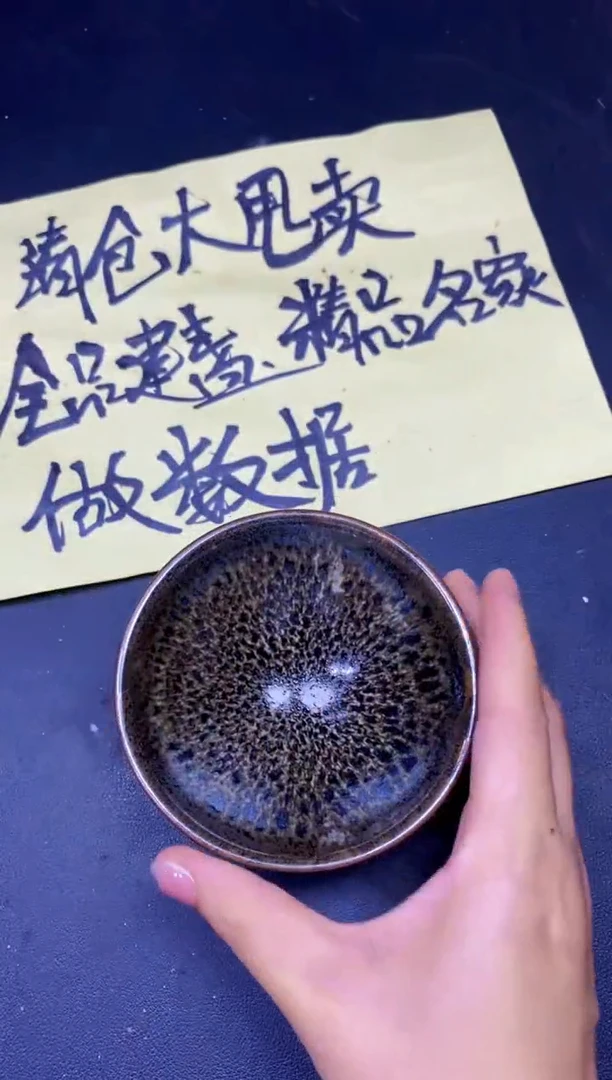 清仓大甩卖
全品建盏、精品名家
做数据